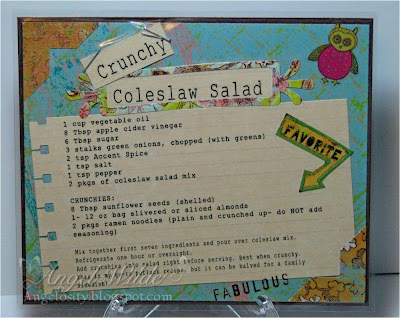 Crunchy
Coleslaw Salad
1 cup vegetable oil
8 Tbsp apple cider vinegar
6 Tbsp sugar
3 stalks green onions, chopped (with greens)
2 tsp Accent Spice
1 tsp salt
1 tsp pepper
2 pkgs of coleslaw salad mix
FAVORITE
CRUNCHIES:
8 Tbsp sunflower seeds (shelled)
1- 12 oz bag slivered or sliced almonds
2 pkgs ramen noodles (plain and crunched up- do NOT add
seasoning)
Mix together first seven ingredients and pour over coleslaw mix.
Refrigerate one hour or overnight.
Add crunchies into salad right before serving. Best when crunchy.
recipe, but it can be halved for a family
FABULOUS
Angelosity.blogspot.com